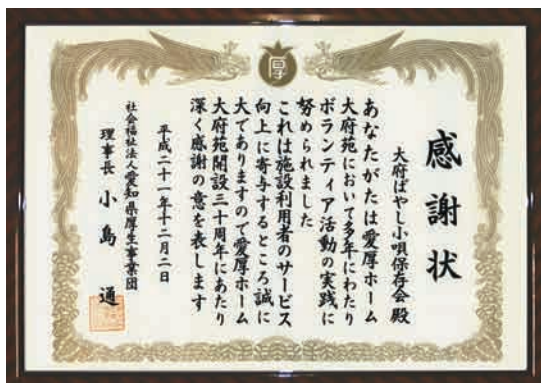 厚
感謝状
大府ばやし小唄保存会殿
あなたがたは愛厚ホーム
大府苑において多年にわたり
ボランティア活動の実践に
努められました
これは施設利用者のサービス
向上に寄与するところ誠に
大でありますので愛厚ホーム
大府苑開設三十周年にあたり
深く感謝の意を表します
平成二十一年十二月二日
社会福祉法人愛知県厚生事業団
理事長 小島通